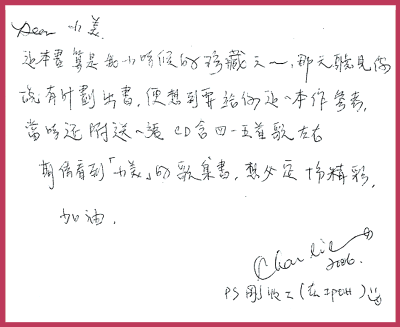 Dear 小美.
這本書算是我小時候的珍藏之一,那天聽見你
說有計劃出書,便想到要給你這一本作參考,
當時還附送一張CD含四~五首歌左右
期待看到「小美」的歌集書,想必定十份精彩,
加油.
Charlie
2006.
PS 剛收工(在工P0H)